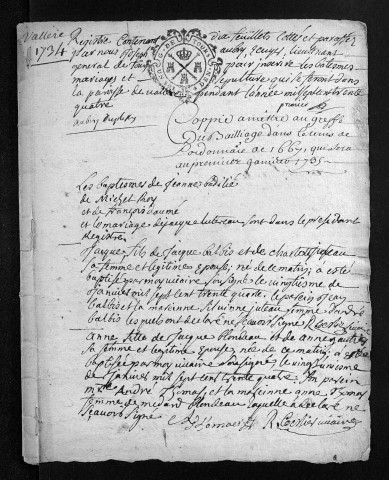 Vallere
1734
Registre Contenant dix feuillets Cottés et paraphés
par nous Joseph aubry, Ecuyer, lieutenant
general de Tours pour inscrire les batemes
mariages et sepulture qui se feront dans
la paroisse de vallere pendant l'année mil sept cent trente
quatre
premier
aubry Duplessy
Coppie a mettre au greffe
Du Bailliage dans le tems de
L'ordonnance de 1667, qui sera
au premier janvier 1735
Les baptesmes de Jeanne
de Michel Roy
et de françois daumé
et le mariage de jacque luteau sont dans le precedant
Registre
Jacque fils de Jacque balbis et de charlotte juteau
sa femme et legitime epouse, né de ce matin, a esté
baptisé par moy vicaire sousigné le vingtiesme de
janvier mil sept cent trente quatre, le parein jean
balbis et la mareinne silvinne juteau femme d'andré
balbis lesquels ont declaré ne sçavoir signé
anne fille de Jacque blondeau et de anne gautier
sa femme et legitime epouse née de ce matin, a esté
baptisée par moy vicaire sousigné le vingt uniesme
de janvier mil sept cent trente quatre, son parein
André et la mareinne anne
femme de medard blondeau laquelle a declaré ne
sçavoir signé
vicaire